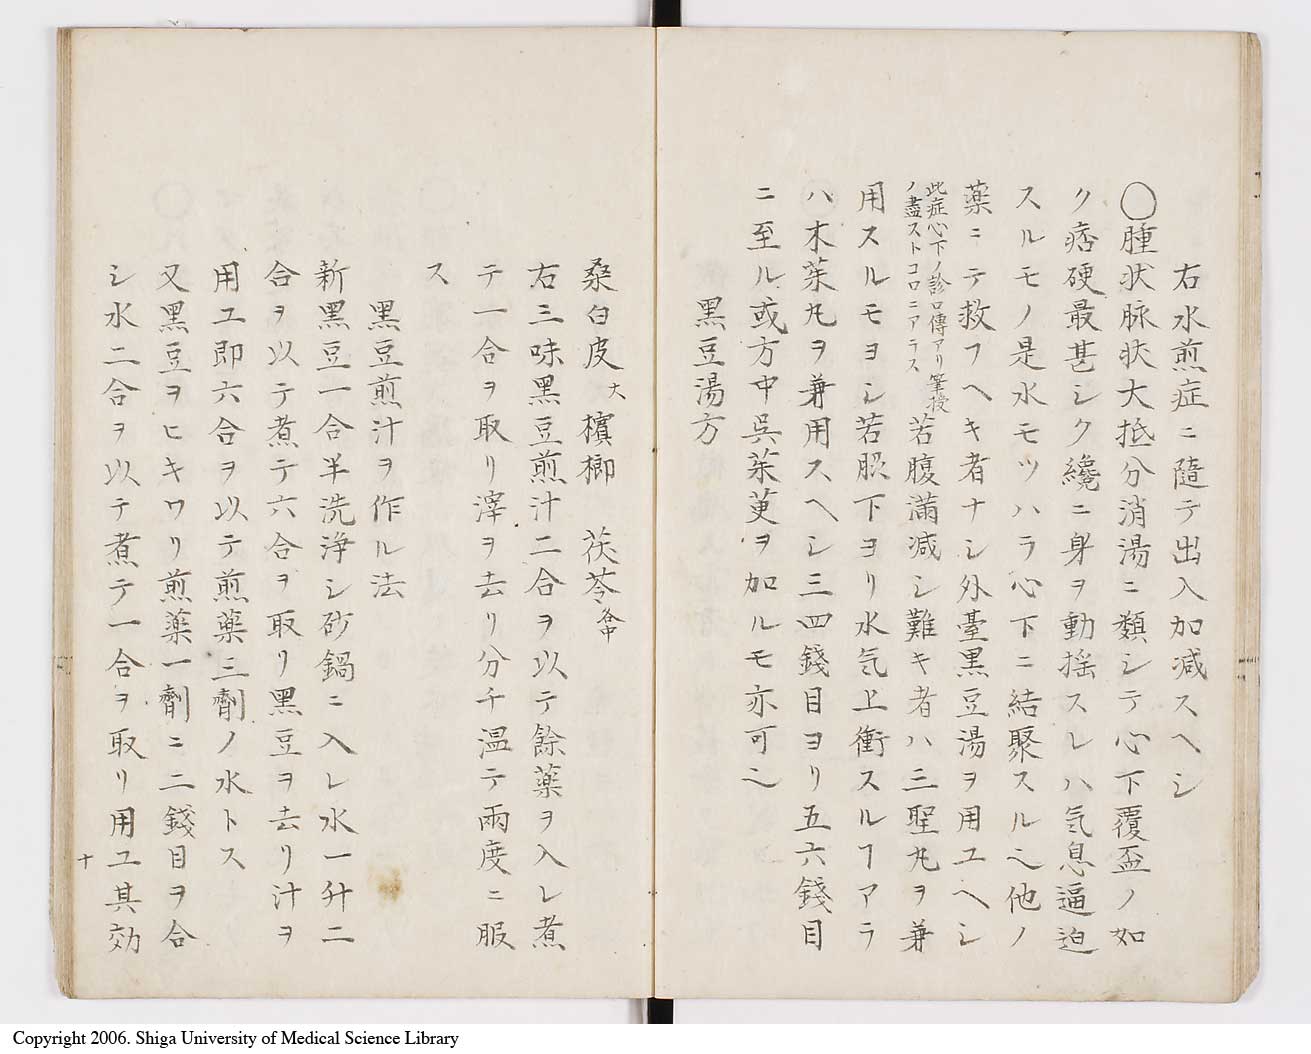 右水煎症ニ隨テ出入加减スヘシ
〇腫状脉状大抵分消湯ニ類シテ心下覆盃ノ如
ク痞硬最甚シク纔ニ身ヲ動揺スレハ気息逼迫
スルモノ是水モツハラ心下ニ結聚スル也他ノ
薬ニテ救フヘキ者ナシ外臺黒豆湯ヲ用ユヘシ
此症心下ノ診口傳アリ筆授
ノ盡ストコロニアラス
若腹滿减シ難キ者ハ三聖丸ヲ兼
用スルモヨシ若脇下ヨリ水気上衝スルヿアラ
ハ木茱丸ヲ兼用スヘシ三四錢目ヨリ五六錢目
ニ至ル或方中呉茱萸ヲ加ルモ亦可也
黒豆湯方
桑白皮大 檳榔 茯苓各中
右三味黒豆煎汁二合ヲ以テ餘薬ヲ入レ煮
テ一合ヲ取リ滓ヲ去リ分チ温テ兩度ニ服
ス
黒豆煎汁ヲ作ル法
新黒豆一合半洗浄シ砂鍋ニ入レ水一升二
合ヲ以テ煮テ六合ヲ取リ黒豆ヲ去リ汁ヲ
用ユ即六合ヲ以テ煎薬三劑ノ水トス
又黒豆ヲヒキワリ煎薬一劑ニ二錢目ヲ合
シ水二合ヲ以テ煮テ一合ヲ取リ用ユ其効
十
Copyright 2006. Shiga University of Medical Science Library